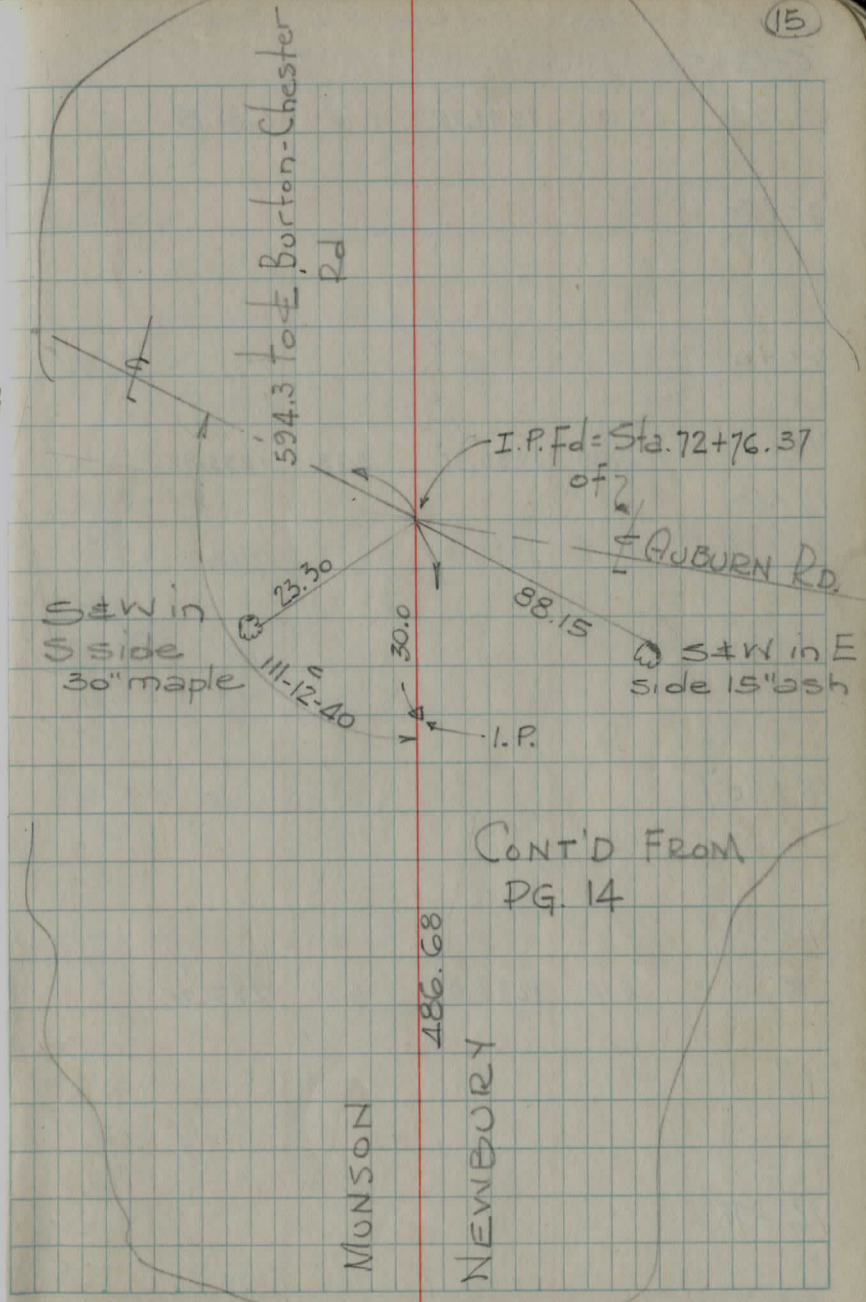 15
594.3 to ℄ Burton-Chester
Rd
I.P. Fd = Sta. 72+76.37
of ?
℄ AUBURN RD.
23.30
88.15
30.0
S&W in
S side
30" maple
111-12-40
S&W in E
side 15" ash
I.P.
CONT'D FROM
PG. 14
486.68
MUNSON
NEWBURY